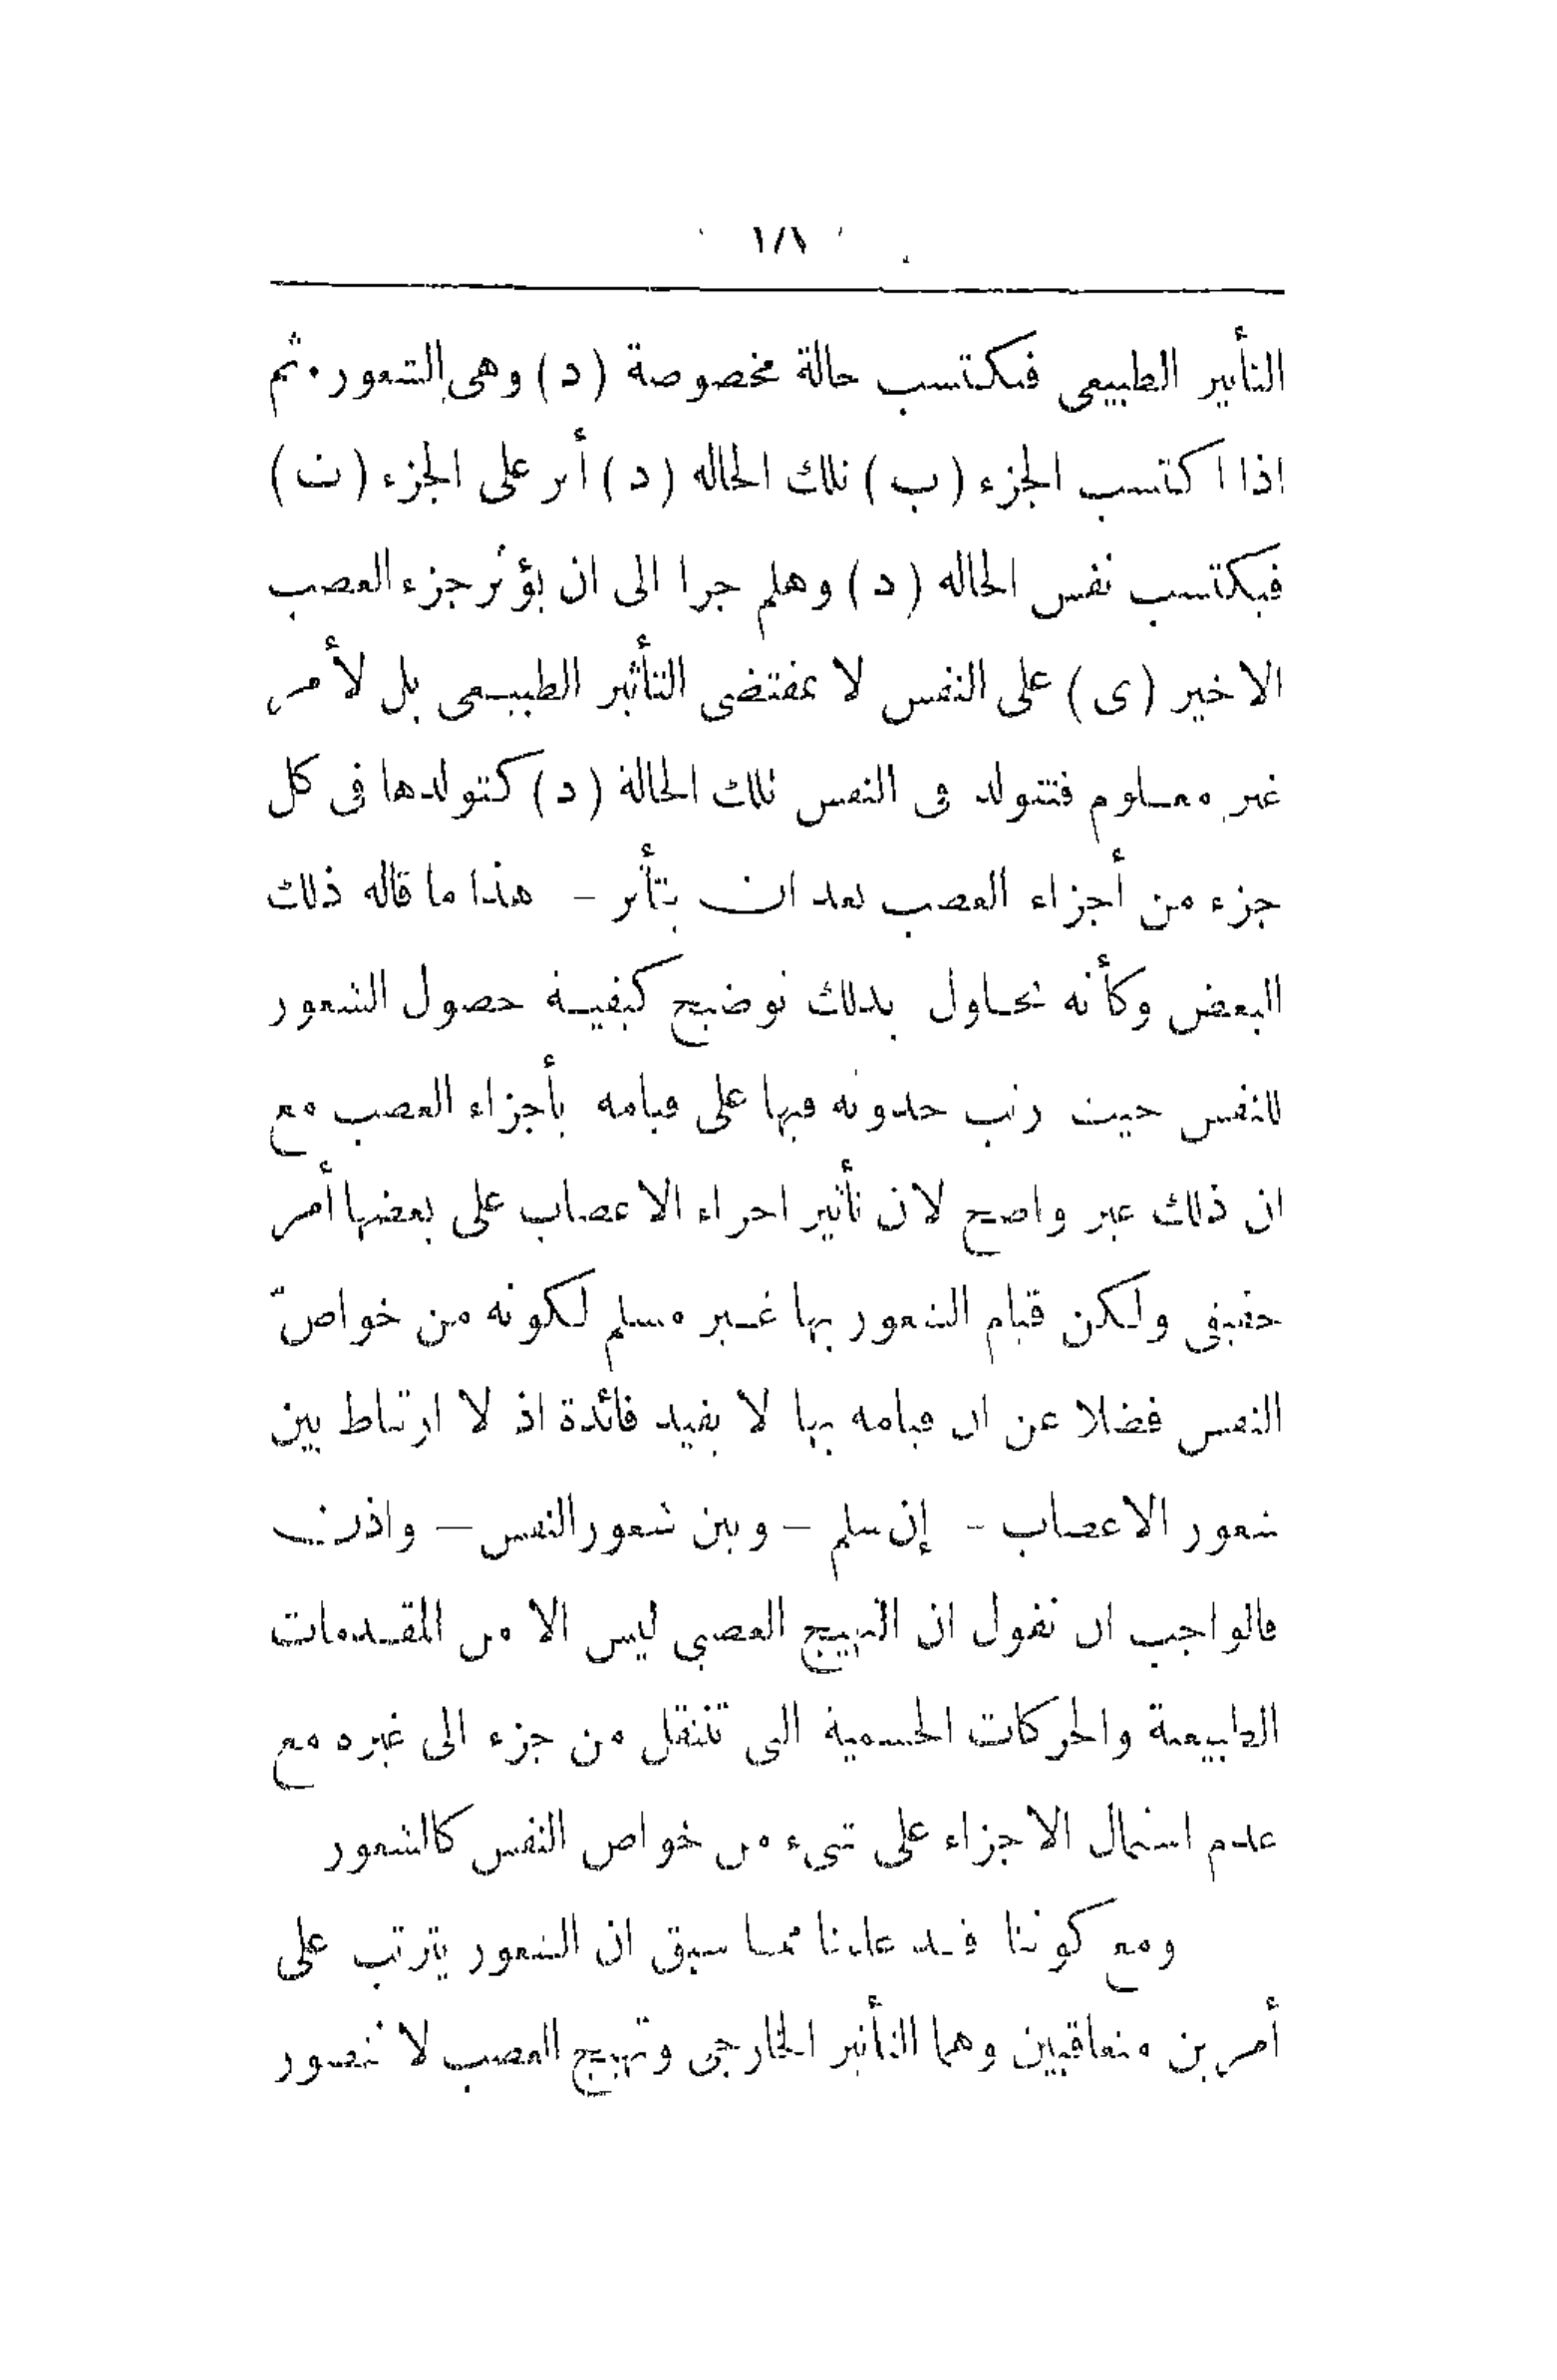 ١٨١
التأثير الطبيعى فيكتسب حالة مخصوصة (د) وهى الشعور٠ ثم
اذا اكتسب الجزء (ب) تلك الحاله (د) أثر على الجزء (ت)
فيكتسب نفس الحاله (د) وهلم جرا الى ان يؤثر جزء العصب
الاخير (ى) على النفس لا بمقتضى التأثير الطبيعى بل لأمر
غير معلوم فتتولد فى النفس تلك الحالة (د) كتولدها فى كل
جزء من أجزاء العصب بعد ان يتأثر – هذا ما قاله ذلك
البعض وكأنه يحاول بذلك توضيح كيفية حصول الشعور
للنفس حيث رتب حدوثه فيها على قيامه بأجزاء العصب مع
ان ذلك غير واضح لان تأثير اجزاء الاعصاب على بعضها أمر
حقيقى ولكن قيام الشعور بها غير مسلم لكونه من خواصّ
النفس فضلا عن ان قيامه بها لا يفيد فائدة اذ لا ارتباط بين
شعور الاعصاب – إن سلم – وبين شعور النفس – واذن
فالواجب ان نقول ان التهيج العصبى ليس الا من المقدمات
الطبيعية والحركات الجسمية التى تنتقل من جزء الى غيره مع
عدم اشتمال الاجزاء على شىء من خواص النفس كالشعور
ومع كوننا قد علمنا مما سبق ان الشعور يترتب على
أمرين متعاقبين وهما التأثير الخارجى وتهيج العصب لا نتصور